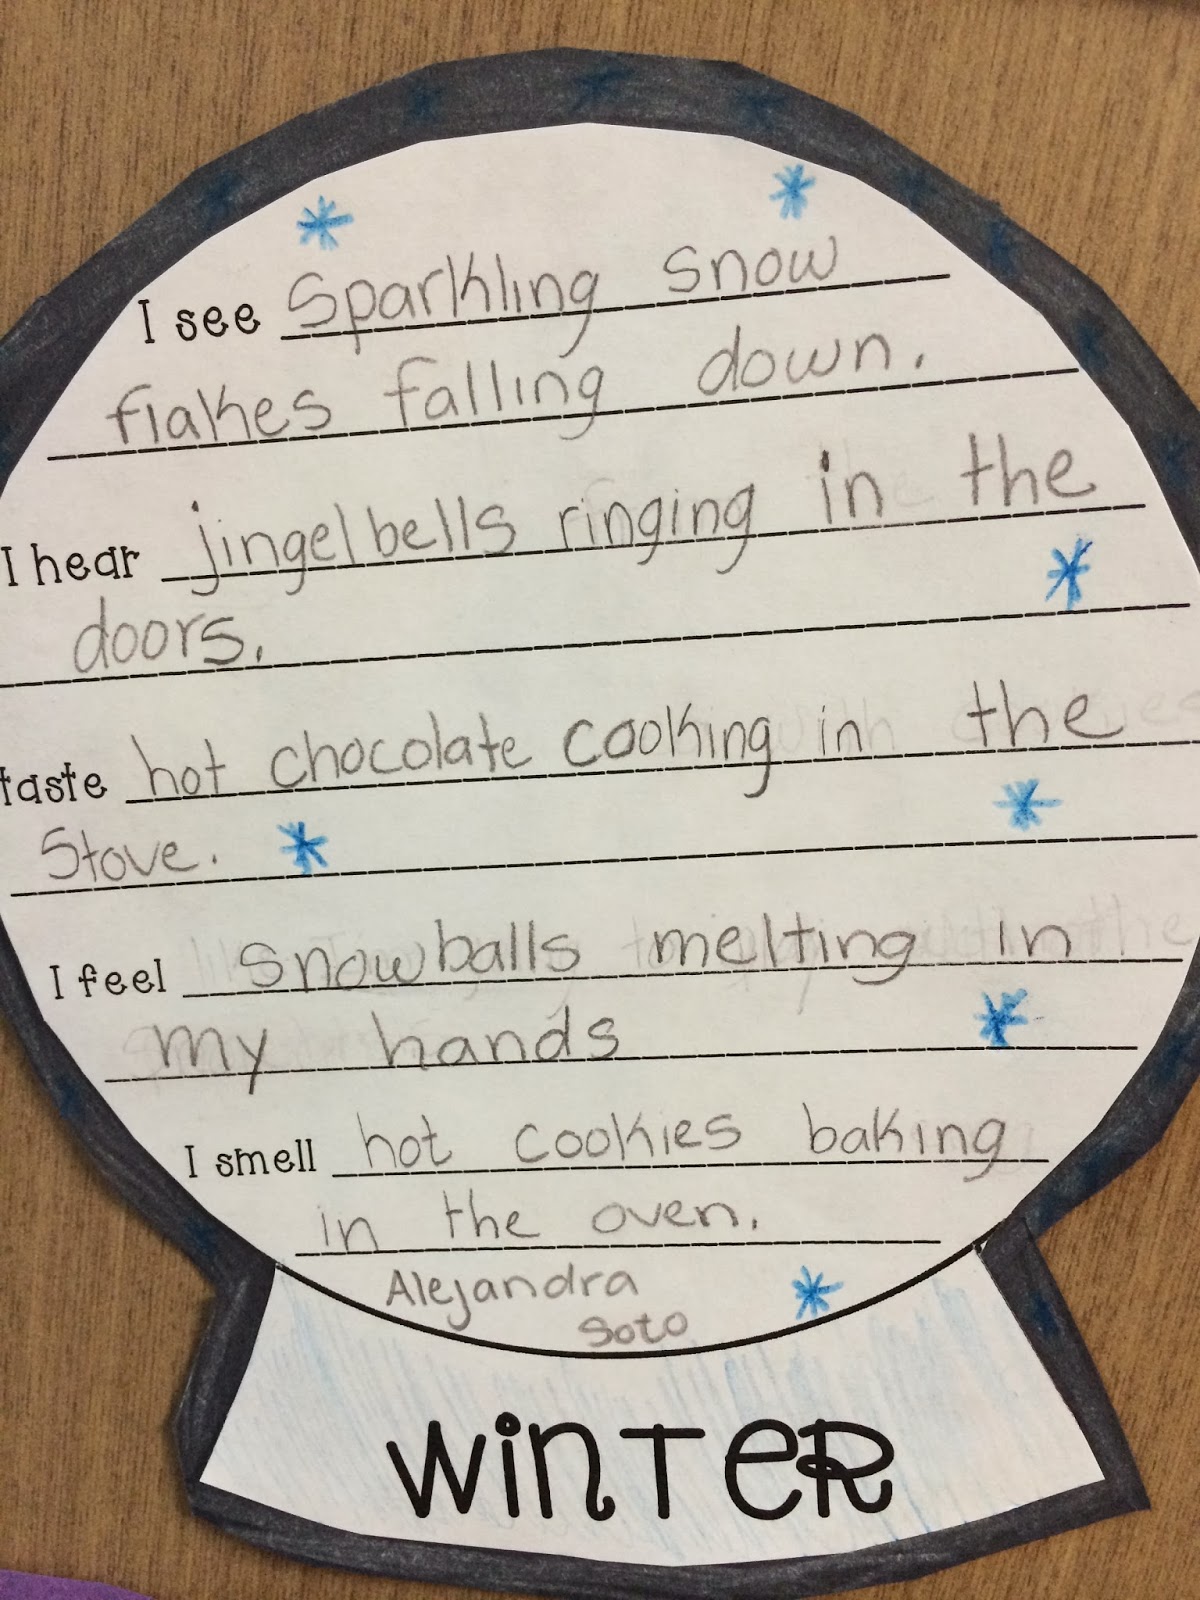 I see Sparkling snow
flakes falling down.
I hear jingel bells ringing in the
doors.
taste hot chocolate cooking in the
Stove.
I feel snowballs melting in
my hands
I smell hot cookies baking
in the oven.
Alejandra
Soto
WINTER